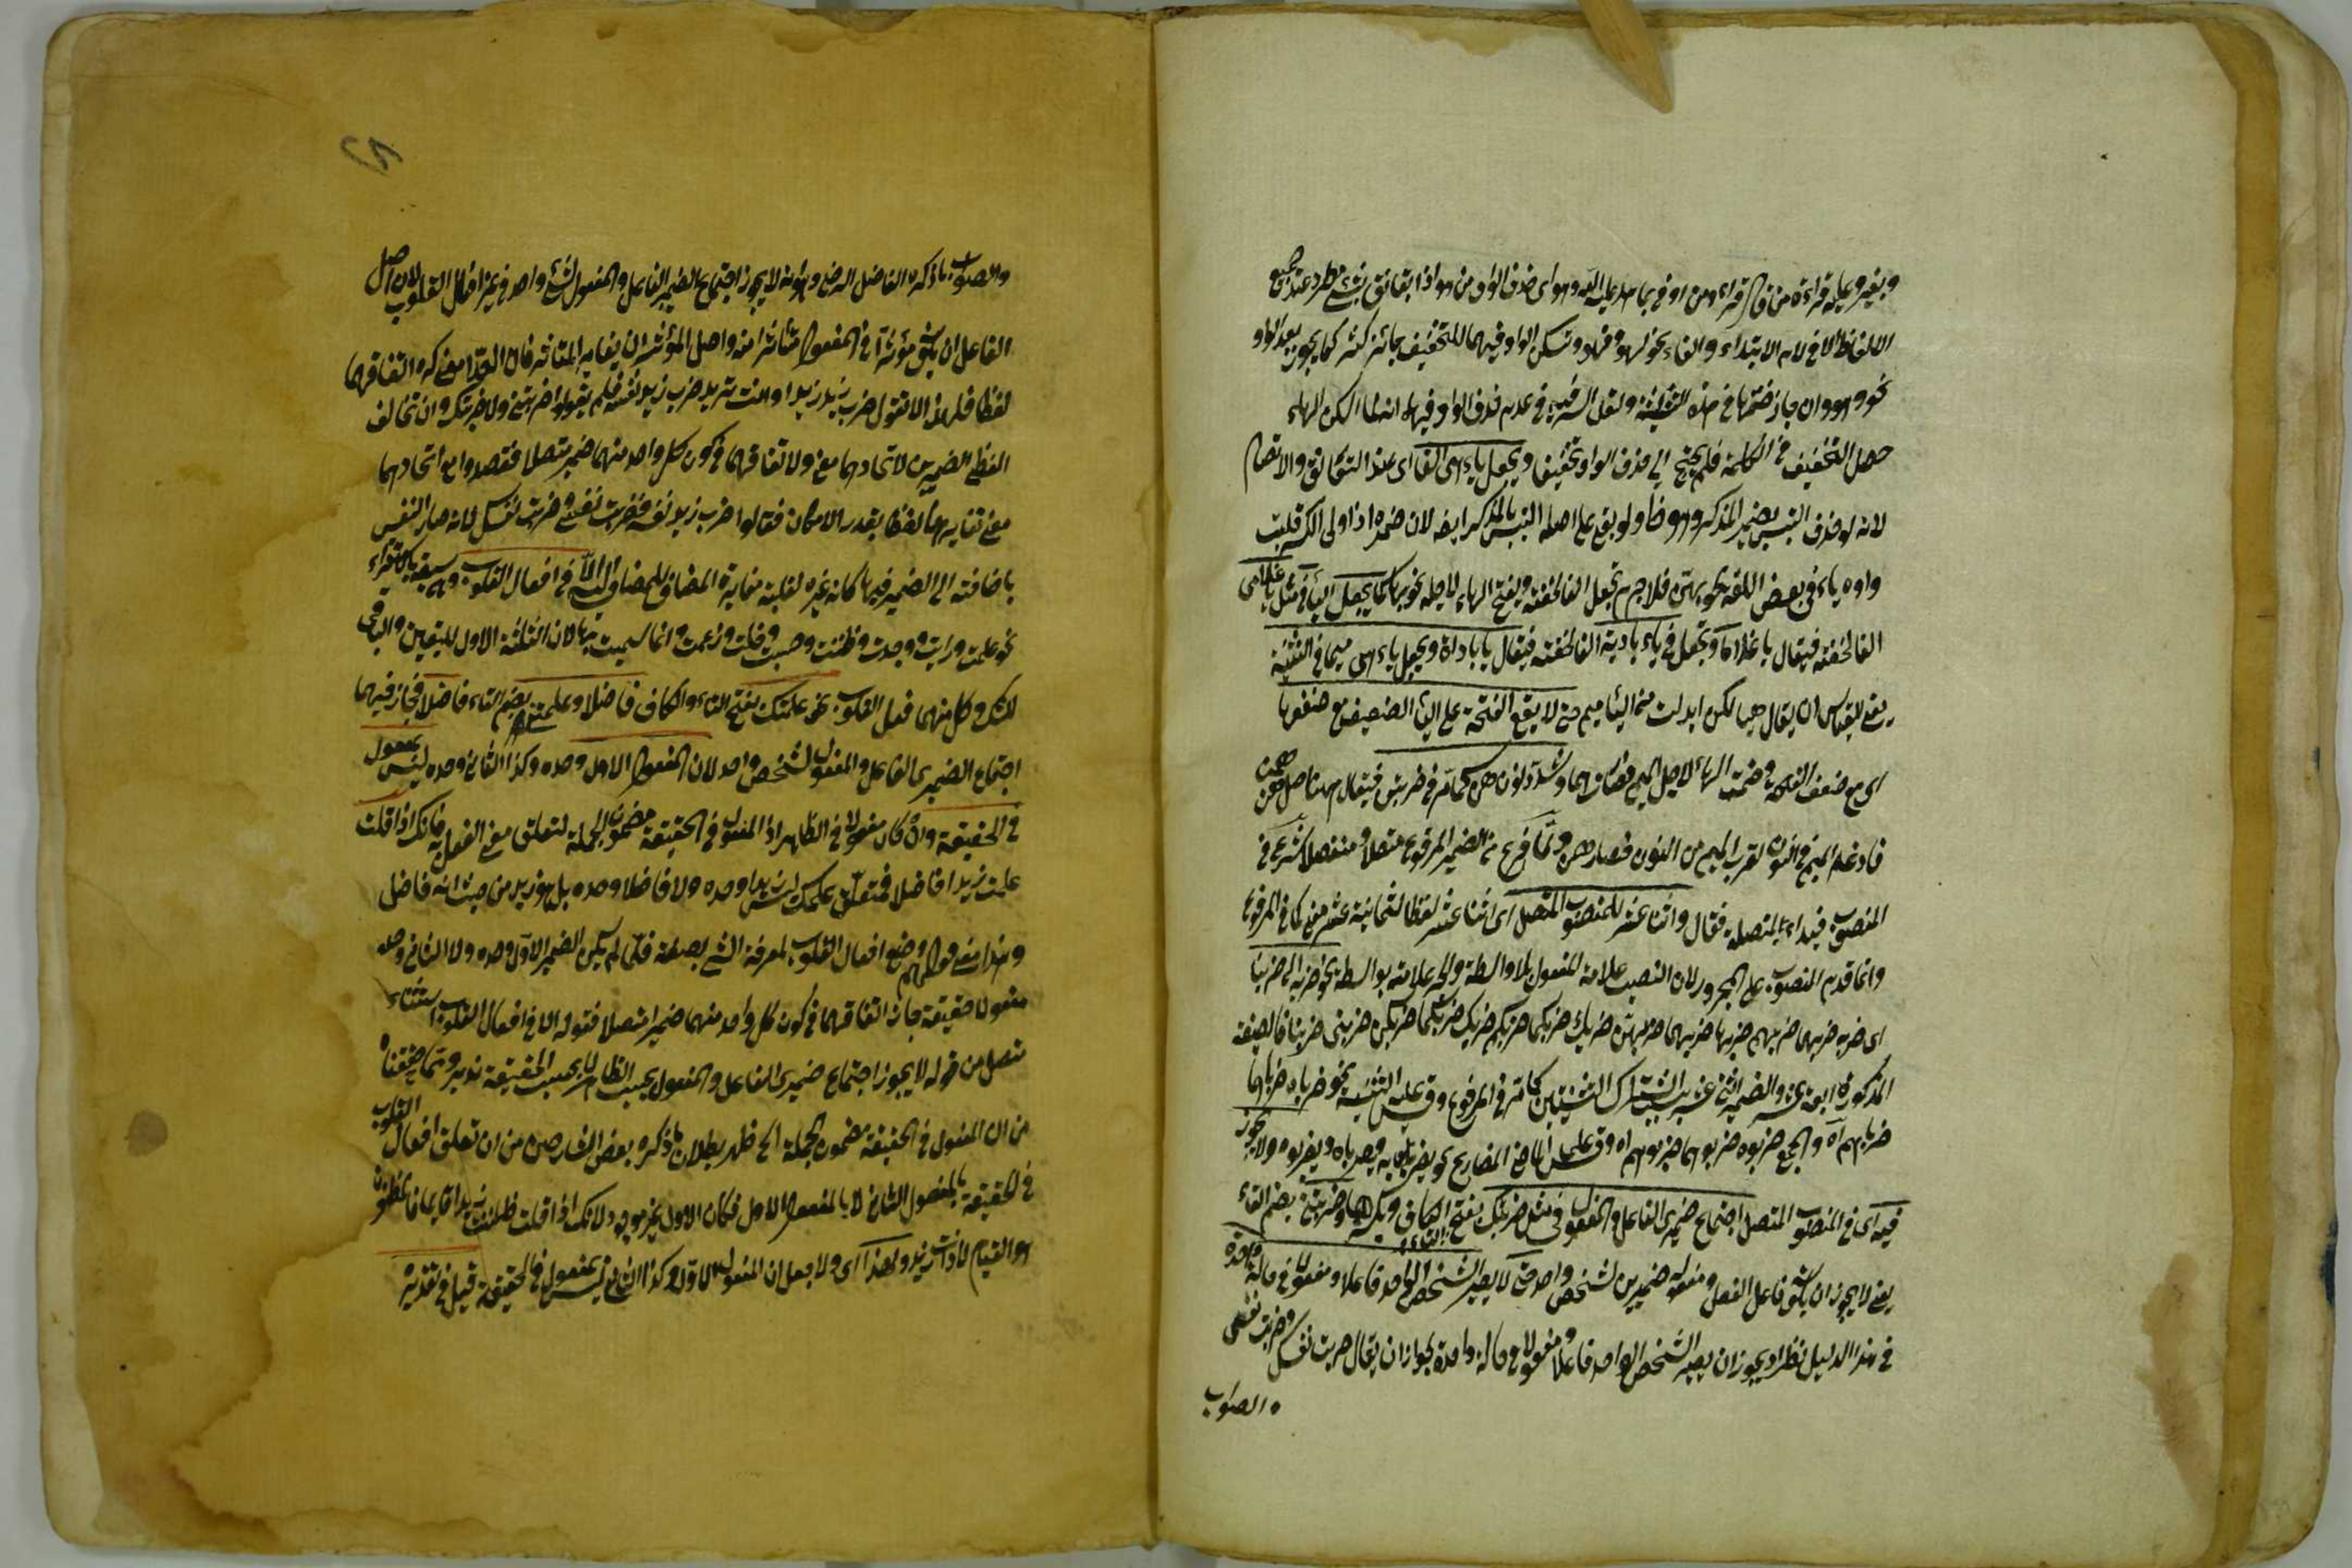 وبغيره وعليه قراءة من قال قراء ومن اوفى بما عاهد عليه الله وهو اى حذف الواو من هو اذا تعانق بشئ مطرد عند جميع
الالفاظ الا فى لام الابتداء والفاء نحو لهو وفهو وتسكن الواو فيهما للتخفيف جائز كثير كما يجوز بعد الواو
نحو وهو وان جاز ضمها فى هذه الثلثة ولعل السر فيه فى عدم حذف الواو فيها انه لما اسكن الهاء
حصل التخفيف فى الكلمة فلم يحتج الى حذف الواو تخفيفا ويجعل ياء هى الفا اى عند التعانق والاتصال
لانه لو حذف التبس بضمير المذكر وهو ظ ولو بقى على اصله التبس بالمذكر ايضا لان ضمه اذا ولى الكسر قلبت
واوه ياء فى بعض اللغة نحو بهى فلا جرم تجعل الفا لخفته ويفتح الهاء لاجله نحو بها كما يجعل الياء فى مثل يا غلامى
الفا لخفته فيقال يا غلاما وتجعل فى ياء بادية الفا لخفته فيقال يا باداة ويجعل ياء هى ميما فى التثنية
يعنى القياس ان يقال هيا لكن ابدلت من الياء ميم حتى لا يقع الفتحة على الياء الضعيف مع ضعفها
اى مع ضعف الفتحة وضمت الهاء لاجل الميم فصار هما وشدد نون هن كما مر فى ضربتن فيقال هنا اصل هن همن
فادغم الميم فى النون لقرب الميم من النون فصار هن ولما فرغ من الضمير المرفوع متصلا ومنفصلا شرع فى
المنصوب فبدا بالمتصل فقال واثنا عشر للمنصوب المتصل اى اثنا عشر لفظا لثمانية عشر معنى كما فى المرفوع
وانما قدم المنصوب على المجرور لان النصب علامة المفعول بلا واسطة والجر علامة بواسطة نحو ضربه الى ضربنا
اى ضربه ضربهما ضربهم ضربها ضربهما ضربهن ضربك ضربكما ضربكم ضربك ضربكما ضربكن ضربنى ضربنا فالصيغة
المذكورة اربعة عشر والضمير اثنى عشر بسبب اشتراك التثنيتين كما مر فى المرفوع وقس عليه التثنية نحو ضرباه ضرباهما
ضرباهم اه والجمع ضربوه ضربوهما ضربوهم اه وقس على الماضى المضارع نحو يضربه ويضرباه ويضربوه ولا يجوز
فيه اى فى المنصوب المتصل اجتماع ضميرى الفاعل والمفعول فى مثل ضربتك بفتح التاء والكاف وبكسرهما وضربتنى بضم التاء
يعنى لا يجوز ان يكون فاعل الفعل ومفعوله ضميرين لشخص واحد حتى لا يصير الشخص الواحد فاعلا ومفعولا فى حالة واحدة
فى هذا الدليل نظر اذ يجوز ان يصير الشخص الواحد فاعلا ومفعولا فى حالة واحدة لجواز ان يقال ضربت نفسك وضربت نفسى
والصواب
والصواب ما ذكره الفاضل الرضى وهو انه لا يجوز اجتماع الضميرين الفاعل والمفعول لشئ واحد فى غير افعال القلوب لان اصل
الفاعل ان يكون مؤثرا فى المفعول متأثرا منه واصل المؤثر ان يغاير المتأثر فان اتحدا معنى كره اتفاقهما
لفظا فلهذا لا تقول ضرب زيد زيدا وانت تريد ضرب زيد نفسه فلم يقولوا ضربتنى ولا ضربتك وان تخالف
لفظى الضميرين لاتحادهما معنى ولاتفاقهما فى كون كل واحد منهما ضميرا متصلا فقصدوا مع اتحادهما
معنى تغايرهما لفظا بقدر الامكان فقالوا ضرب زيد نفسه وضربت نفسى وضربت نفسك لانه صار النفس
باضافته الى الضمير فيها كانه غيره لغلبة مغايرة المضاف للمضاف اليه الا فى افعال القلوب وهى سبعة بالاستقراء
نحو علمت ورايت ووجدت وظننت وحسبت وخلت وزعمت وانما سميت بها لان الثلثة الاول لليقين والباقى
للشك وكل منهما فعل القلوب نحو علمتك بفتح التاء والكاف فاضلا وعلمتنى بضم التاء فاضلا فجاز فيهما
اجتماع الضميرى الفاعل والمفعول لشخص واحد لان المفعول الاول وحده وكذا الثانى وحده ليس بمفعول
فى الحقيقة وان كان مفعولا فى الظاهر اذ المفعول فى الحقيقة مضمون الجملة لتعلق معنى الفعل به فانك اذا قلت
علمت زيدا فاضلا فمتعلق علمك ليس زيدا وحده ولا فاضلا وحده بل هو زيد من حيث انه فاضل
وهذا معنى قولهم وضع افعال القلوب لمعرفة الشئ بصفة فلما لم يكن الضمير الاول وحده ولا الثانى وحده
مفعولا حقيقة جاز اتفاقهما فى كون كل واحد منهما ضميرا متصلا فقوله الا فى افعال القلوب استثناء
متصل من قوله لا يجوز اجتماع ضميرى الفاعل والمفعول بحسب الظاهر لا بحسب الحقيقة تدبر ومما حققناه
من ان المفعول فى الحقيقة مضمون الجملة الخ ظهر بطلان ما ذكره بعض الشارحين من ان تعلق افعال القلوب
فى الحقيقة بالمفعول الثانى لا بالمفعول الاول فكان الاول غير موجود لانك اذا قلت ظننت زيدا قايما فالمظنون
هو القيام لا ذات زيد ولهذا اى ولاجل ان المفعول الاول وكذا الثانى ليس بمفعول فى الحقيقة قيل فى تقديره